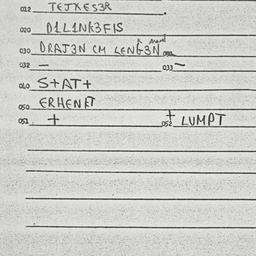 012 TEJXES3R
020 D1L1NK3FIS
030 DRAT3N CM LENG3N
032 — 033 —
040 S+AT+
050 ERHENKT
051 + 052 + LUMPT